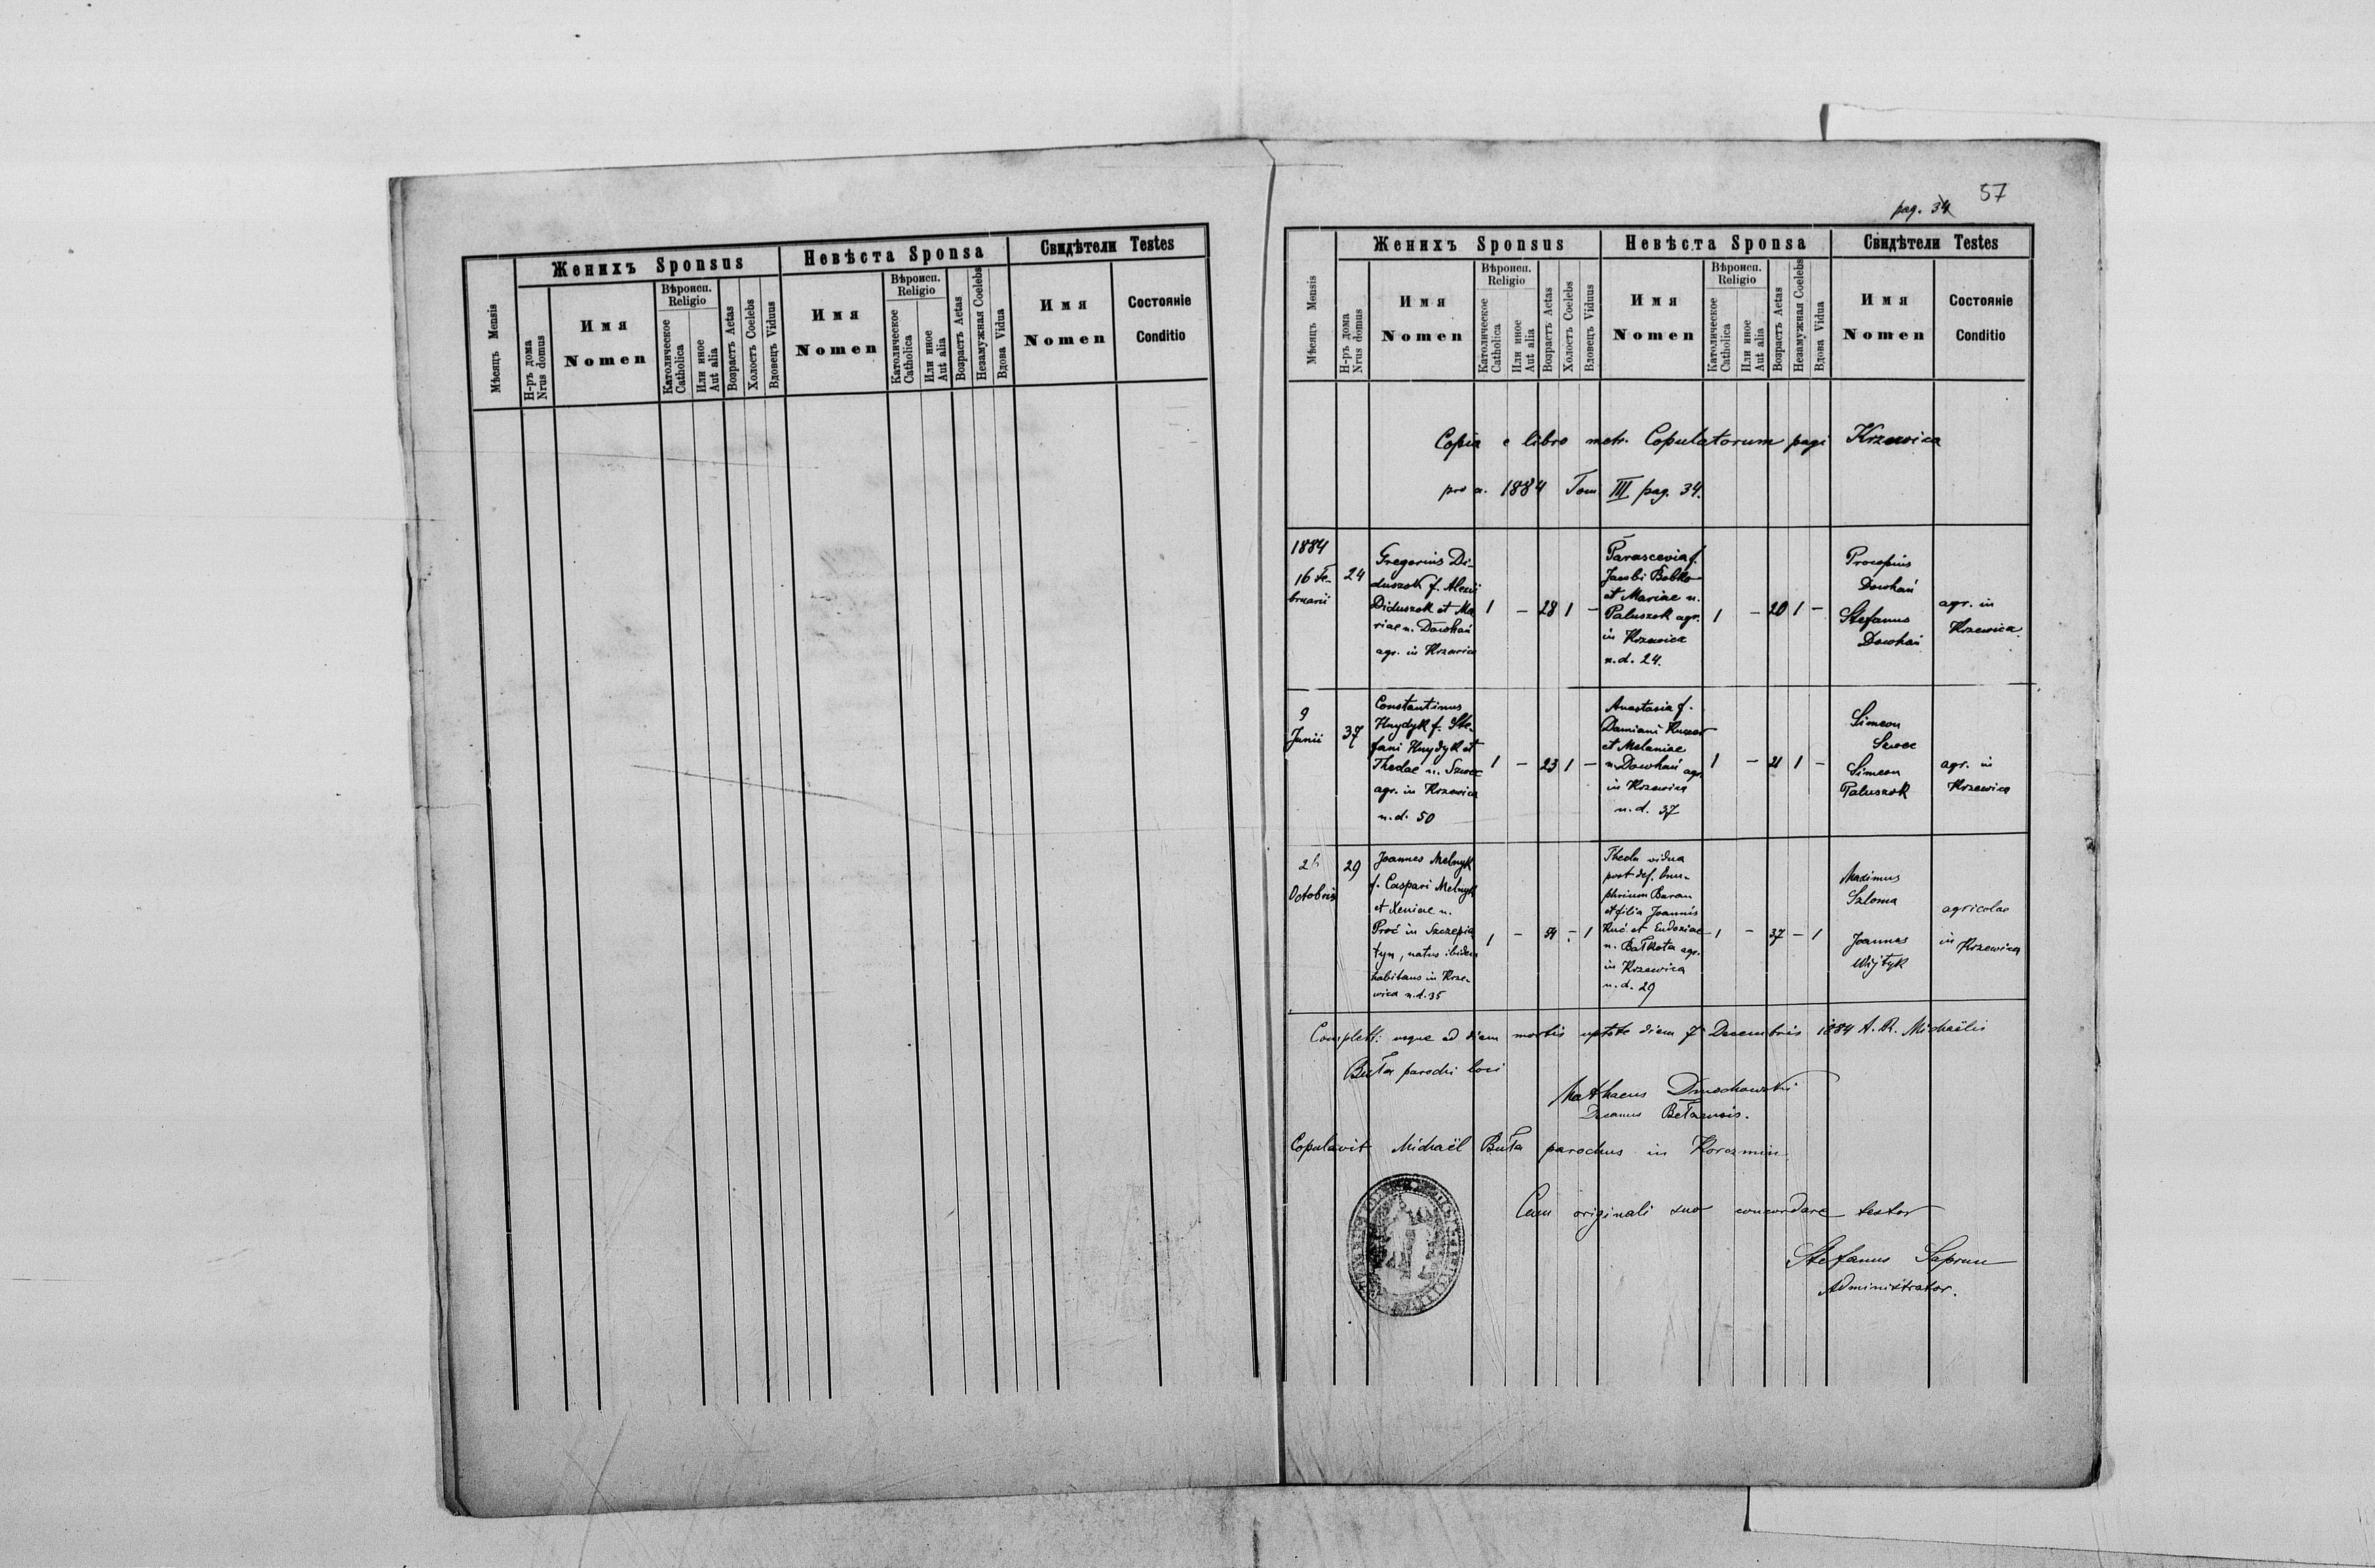 Мѣсяцъ Mensis
Женихъ Sponsus
Невѣста Sponsa
Свидѣтели Testes
Н-ръ дома Nrus domus
Имя Nomen
Вѣроисп. Religio
Католическое Catholica
Или иное Aut alia
Возрастъ Aetas
Холостъ Coelebs
Вдовецъ Viduus
Имя Nomen
Вѣроисп. Religio
Католическое Catholica
Или иное Aut alia
Возрастъ Aetas
Незамужная Coelebs
Вдова Vidua
Имя Nomen
Состояніе Conditio
57
pag. 34
Мѣсяцъ Mensis
Женихъ Sponsus
Невѣста Sponsa
Свидѣтели Testes
Н-ръ дома Nrus domus
Имя Nomen
Вѣроисп. Religio
Католическое Catholica
Или иное Aut alia
Возрастъ Aetas
Холостъ Coelebs
Вдовецъ Viduus
Имя Nomen
Вѣроисп. Religio
Католическое Catholica
Или иное Aut alia
Возрастъ Aetas
Незамужная Coelebs
Вдова Vidua
Имя Nomen
Состояніе Conditio
Copia e libro metr. Copulatorum pagi Krzewica
pro a. 1884 Tom III pag. 34.
1884
16 Fe-
bruarii
24
Gregorius Di-
duszok f. Alexii
Diduszok et Ma
riae n. Dowhań
agr. in Krzewica
1 – 28 1 –
Parascevia f.
Jacobi Bobko
et Mariae n.
Paluszok agr.
in Krzewica
n.d. 24.
1 – 20 1 –
Procopius
Dowhań
Stefanus
Dowhań
agr. in
Krzewica
9
Junii
37
Constantinus
Hnydyk f. Ste-
fani Hnydyk et
Theclae n. Szwec
agr. in Krzewica
n.d. 50
1 – 23 1 –
Anastasia f.
Damiani
et Melaniae
n. Dowhań agr.
in Krzewica
n.d. 37
1 – 21 1 –
Simeon
Szwec
Simeon
Paluszok
agr. in
Krzewica
26
Octobris
29
Joannes Melnyk
f. Caspari Melnyk
et Xeniae n.
Proć in Szczepia
tyn, natus ibidem
habitans in Krze-
wica n.d. 35
1 – 54 – 1
Thecla vidua
post def. Onu-
phrium Baran
et filia Joannis
Kuć et Eudoxiae
n. Bałkota agr.
in Krzewica
n.d. 29
1 – 37 – 1
Maximus
Szloma
Joannes
Wijtyk
agricolae
in Krzewica
Complett: usque ad diem mortis utpote diem 7 Decembris 1884 A. R. Michaëlis
Buła parochi loci
Mathaeus
Decanus Bełzensis.
Copulavit Michaël Buła parochus in Korczmin
Cum originali suo concordare testor
Stefanus Saprun
Administrator.